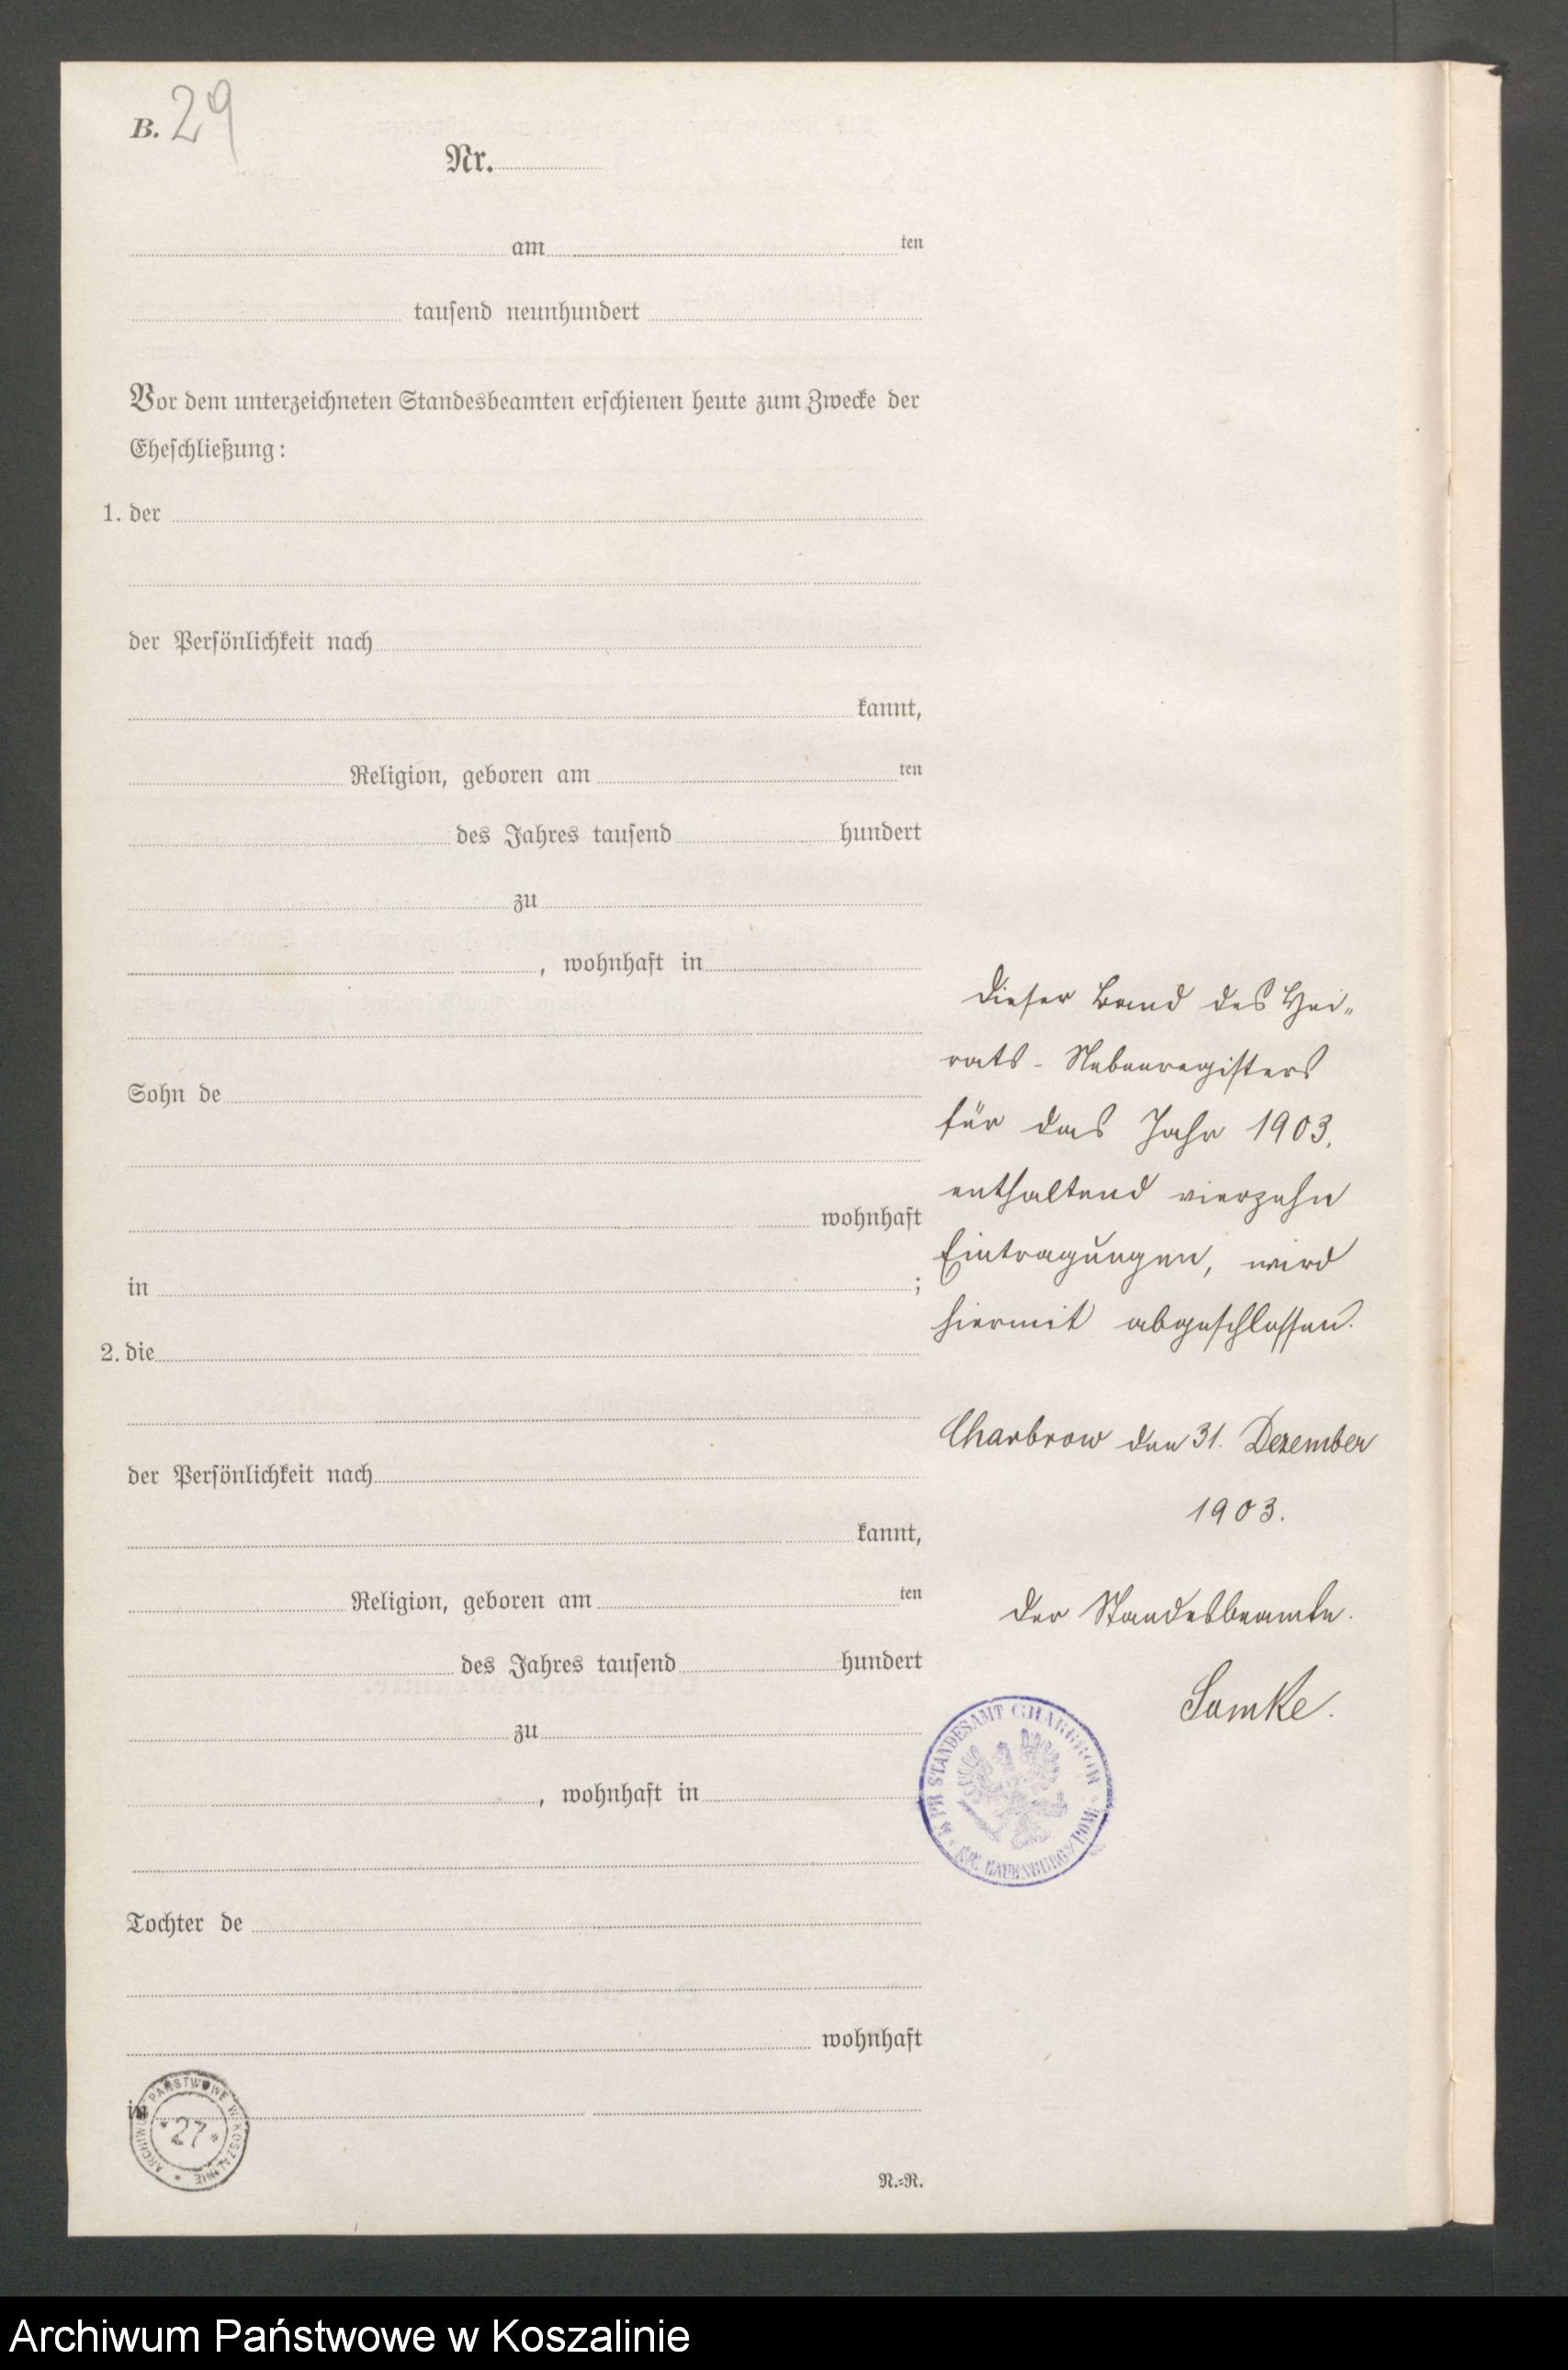 B. 29
Nr.
am ten
tausend neunhundert
Vor dem unterzeichneten Standesbeamten erschienen heute zum Zwecke der
Eheschließung:
1. der
der Persönlichkeit nach
kannt,
Religion, geboren am ten
des Jahres tausend hundert
zu
, wohnhaft in
Sohn de
wohnhaft
in ;
2. die
der Persönlichkeit nach
kannt,
Religion, geboren am ten
des Jahres tausend hundert
zu
, wohnhaft in
Tochter de
wohnhaft
in
N.=R.
Dieser Band des Hei„
rats - Nebenregisters
für das Jahr 1903,
enthaltend vierzehn
Eintragungen, wird
hiermit abgeschlossen.
Charbrow den 31. Dezember
1903.
Der Standesbeamte.
K. PR STANDESAMT CHARBROW
KR. LAUENBURG I/POM
ARCHIWUM PAŃSTWOWE W KOSZALINIE
* 27 *
Archiwum Państwowe w Koszalinie